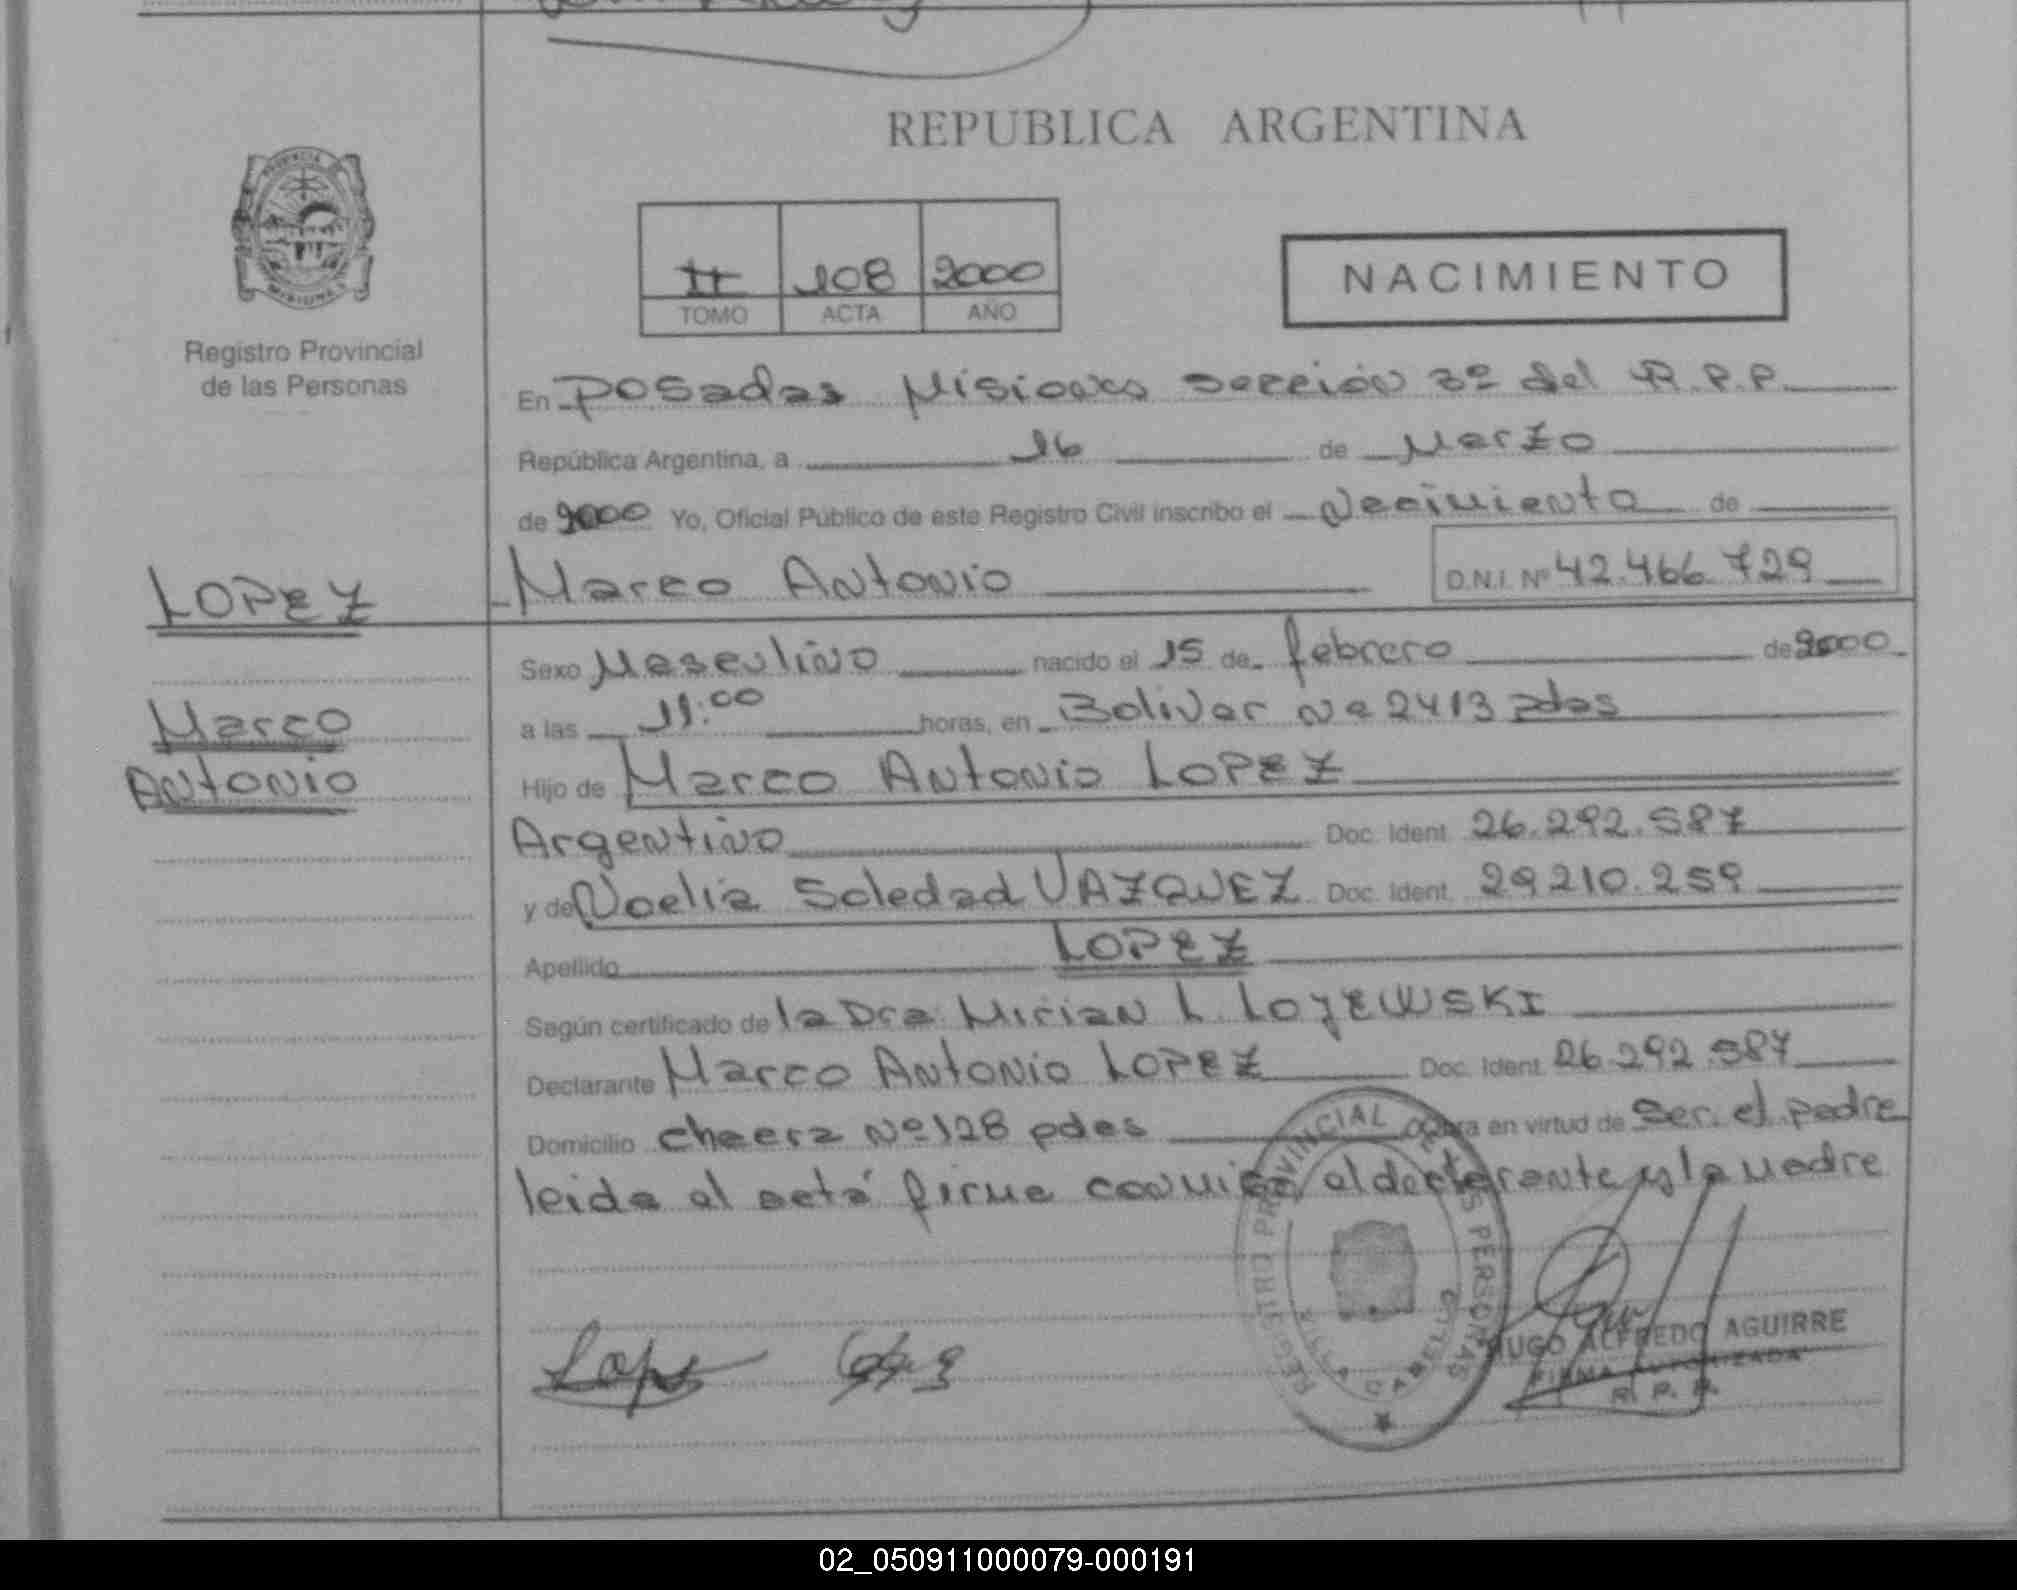 REPUBLICA ARGENTINA
PROVINCIA
MISIONES
Registro Provincial
de las Personas
II 108 2000
TOMO ACTA AÑO
NACIMIENTO
En Posadas Misiones sección 3º del R.P.P.
República Argentina, a 16 de Marzo
de 2000 Yo, Oficial Público de este Registro Civil inscribo el Nacimiento de
Marco Antonio D.N.I. Nº 42.466.729
LOPEZ
Marco
Antonio
Sexo Masculino nacido el 15 de febrero de 2000
a las 11:00 horas, en Bolivar Nº 2413 pdas
Hijo de Marco Antonio LOPEZ
Argentino Doc. Ident. 26.292.587
y de Noelia Soledad VAZQUEZ Doc. Ident. 29.210.259
Apellido LOPEZ
Según certificado de la Dra Mirian L. LOJEWSKI
Declarante Marco Antonio LOPEZ Doc. Ident. 26.292.587
Domicilio chacra Nº 128 pdas obra en virtud de ser el padre
leida el acta firma conmigo el declarante y la madre
REGISTRO PROVINCIAL DE LAS PERSONAS
Lopez
HUGO ALFREDO AGUIRRE
FIRMA AUTORIZADA
R. P. P.
02_050911000079-000191